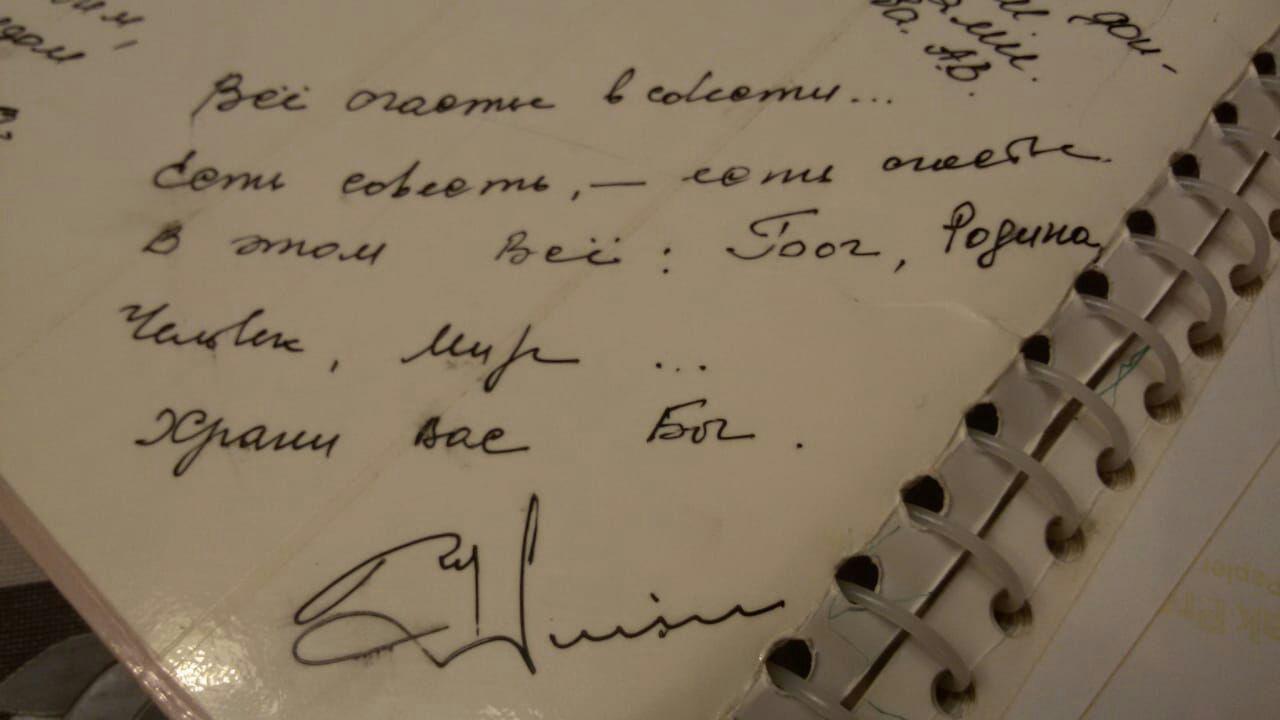 Всё счастье в совести...
Есть совесть, — есть счастье.
В этом всё: Бог, Родина,
Человек, Мир ...
Храни вас Бог.
А.В.